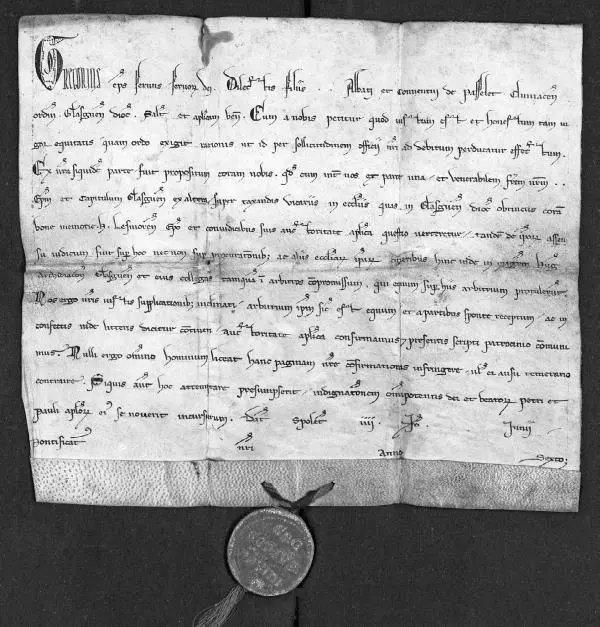 Gregorius ep̄s servus servor̄ dei. Dilectis filiis . . Abbati et conventui de Passelet Cluniaceñ
ordiñ Glasgueñ dioc̄. Salt̄ et aplicam beñ. Cum a nobis petitur quod iustum est et honestum tam vi
gor equitatis quam ordo exigit rationis ut id per sollicitudinem officii nr̄i ad debitum perducatur effectum.
Ex vr̄a siquidem parte fuit propositum coram nobis. qd̄ cum int̄ vos ex parte una et venerabilem frēm nr̄m . .
Ep̄m et Capitulum Glasgueñ ex altera super taxandis vicariis in eccliis quas in Glasgueñ dioc̄ obtinetis coram
bone memorie H. Lesmoreñ Ep̄o et coniudicibus suis auctoritate aplica questio verteretur. tandem de ipsor̄ assen
su iudicum sup̄ hoc nec non sup̄ procurationib; ac aliis eccliar̄ ipsar̄ oneribus hinc inde in magistrum
Archidiacoñ Glasgueñ et eius collegas tamquam ī arbitros compromissum. qui equum sup̄ hiis arbitrium protulerunt.
Nos ergo vr̄is iustis supplicationib; inclinati arbitrium ipm̄ sic̄ est equum et a partibus sponte receptum ac in
confectis inde litteris dicitur contineri auctoritate aplica confirmamus et presentis scripti patrocinio communi
mus. Nulli ergo omnino hominum liceat hanc paginam nr̄e confirmationis infringere vel ei ausu temerario
contraire. Siquis aut̄ hoc attemptare presumpserit indignationem omnipotentis dei et beator̄ Petri et
Pauli aplor̄ eī se noverit incursurum. Dat̄ Spolet̄ iiii Id̄ Junii
Pontificat̄ nr̄i Anno Sexto;